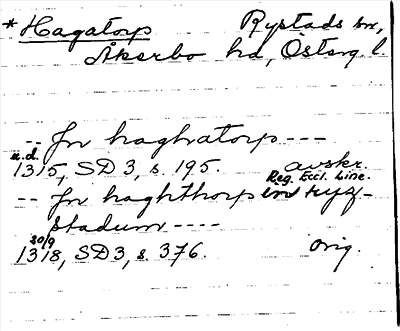 * Hagatorp Rystads sn,
Åkerbo hd, Österg. l.
-- Jn haghatorp ---
u.d.
1315, SD 3, s. 195. avskr.
Reg. Eccl. Linc.
-- Jn haghthorp in ryz-
stadum ----
20/9
1318, SD 3, s. 376. orig.